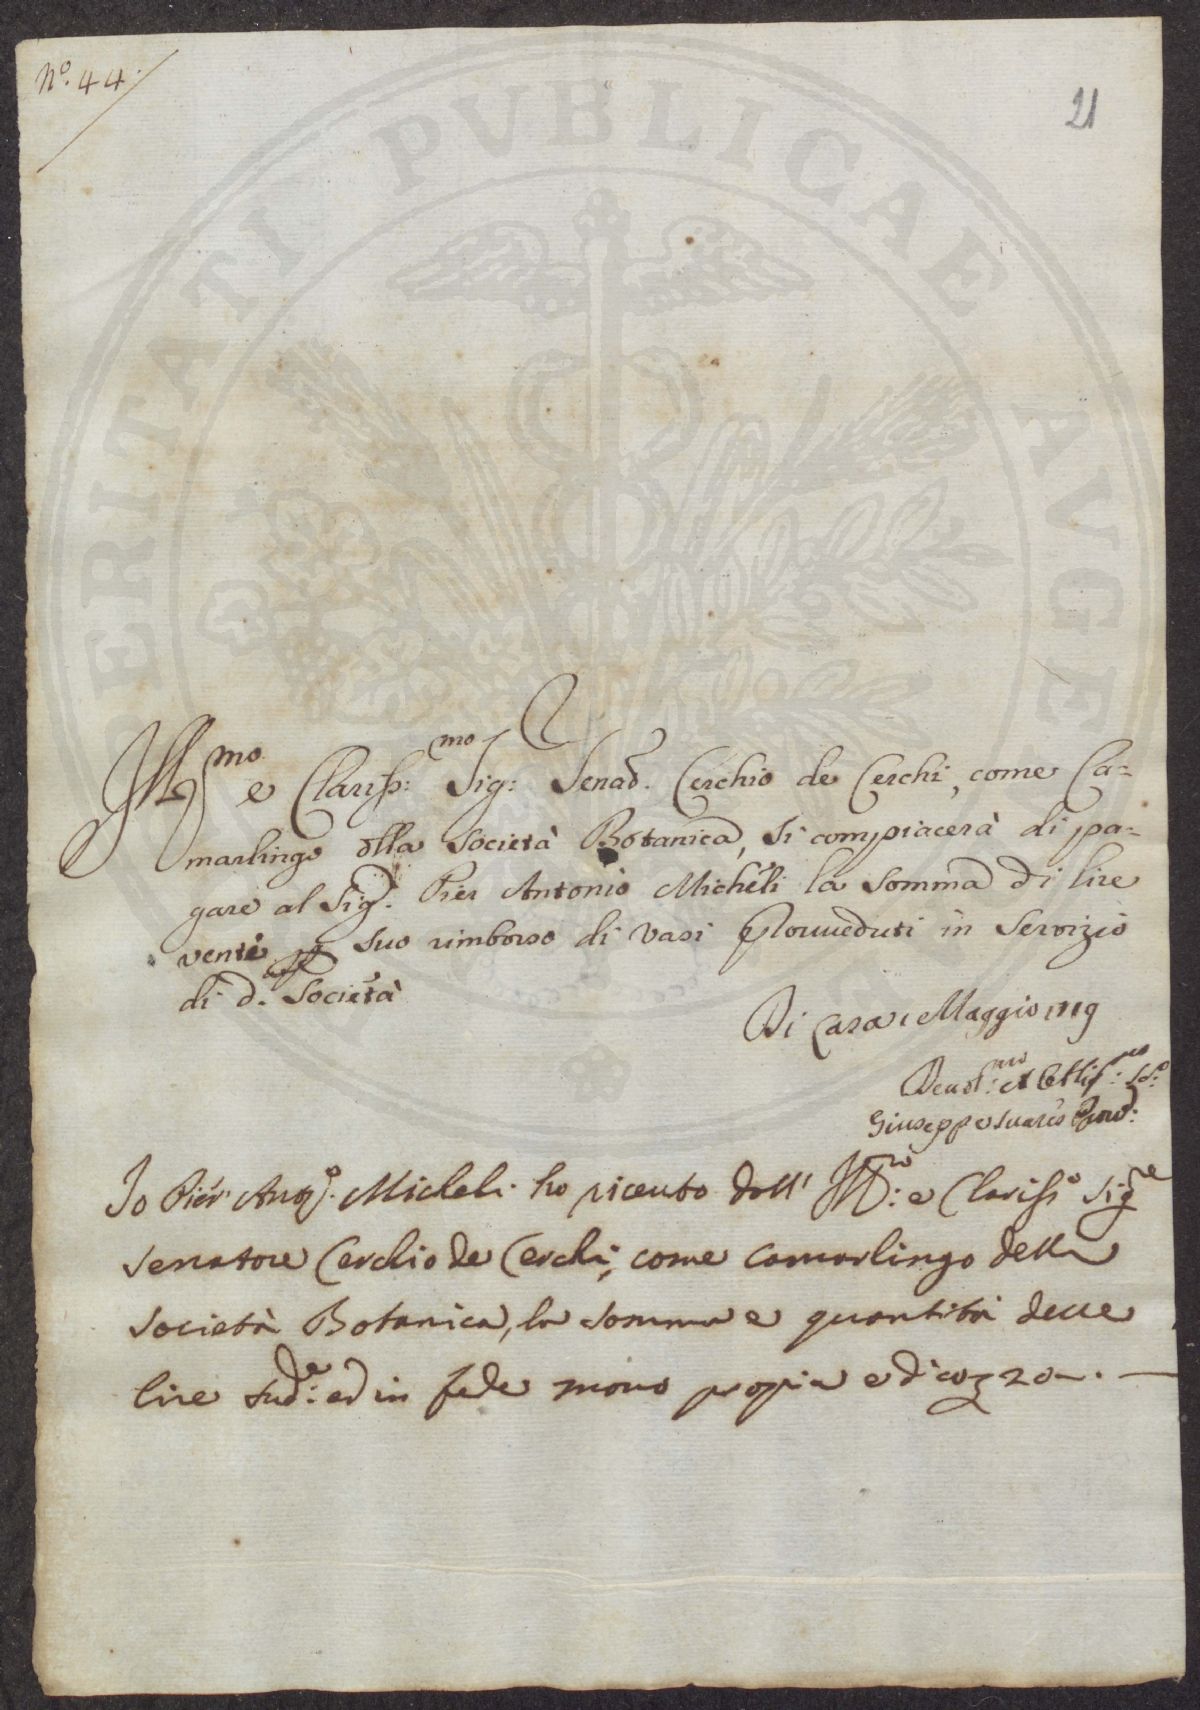 N.º 44.
21
Ill.mo e Clariss:mo Sig: Senad. Cerchio de Cerchi, come Ca=
marlingo della Società Botanica, si compiacerà di pa=
gare al Sig. Pier Antonio Micheli la somma di lire
venti suo rimborso di vasi Provveduti in Servizio
di d.a Società
Di Casa 1 Maggio 1719
Devot:mo et Obblig:mo Se:
Giuseppe Suares Provd:
Io Pier' Ant.º Micheli ho riceuto dall' Ill:mo e Clariss.º Sig.re
Senatore Cerchio de Cerchi, come Camarlingo della
Società Botanica, la somma e quantità delle
lire sud:e ed in fede mano propia e dico ₤ 20 —. —
PERITATI PVBLICAE AVGE